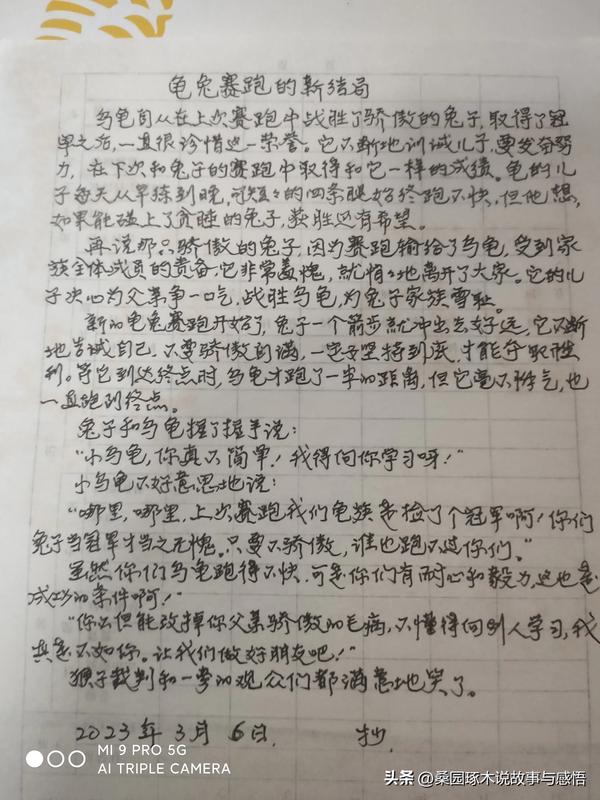 龟兔赛跑的新结局
乌龟自从在上次赛跑中战胜了骄傲的兔子,取得了冠
军之后,一直很珍惜这一荣誉。它不断地训诫儿子,要发奋努
力,在下次和兔子的赛跑中取得和它一样的成绩。龟的儿
子每天从早练到晚,可短々的四条腿始终跑不快,但他想,
如果能碰上了贪睡的兔子,获胜还有希望。
再说那只骄傲的兔子,因为赛跑输给了乌龟,受到家
族全体成员的责备,它非常羞愧,就悄々地离开了大家。它的儿
子决心为父亲争一口气,战胜乌龟,为兔子家族雪耻。
新的龟兔赛跑开始了,兔子一个箭步就冲出去好远,它不断
地告诫自己,不要骄傲自满,一定子坚持到底,才能夺取胜
利。等它到达终点时,乌龟才跑了一半的距离,但它毫不泄气,也
一直跑到终点。
兔子和乌龟握了握手说:
“小乌龟,你真不简单!我得向你学习呀!”
小乌龟不好意思地说:
“哪里,哪里,上次赛跑我们龟族是捡了个冠军啊!你们
兔子当冠军才当之无愧。只要不骄傲,谁也跑不过你们。”
虽然你们乌龟跑得不快,可是你们有耐心和毅力,这也是
成功的条件啊!”
“你不但能改掉你父亲骄傲的毛病,不懂得向别人学习,我
真是不如你。让我们做好朋友吧!”
猴子裁判和一旁的观众们都满意地笑了。
2023年3月6日. 抄.
MI 9 PRO 5G
AI TRIPLE CAMERA
头条@桑园琢木说故事与感悟